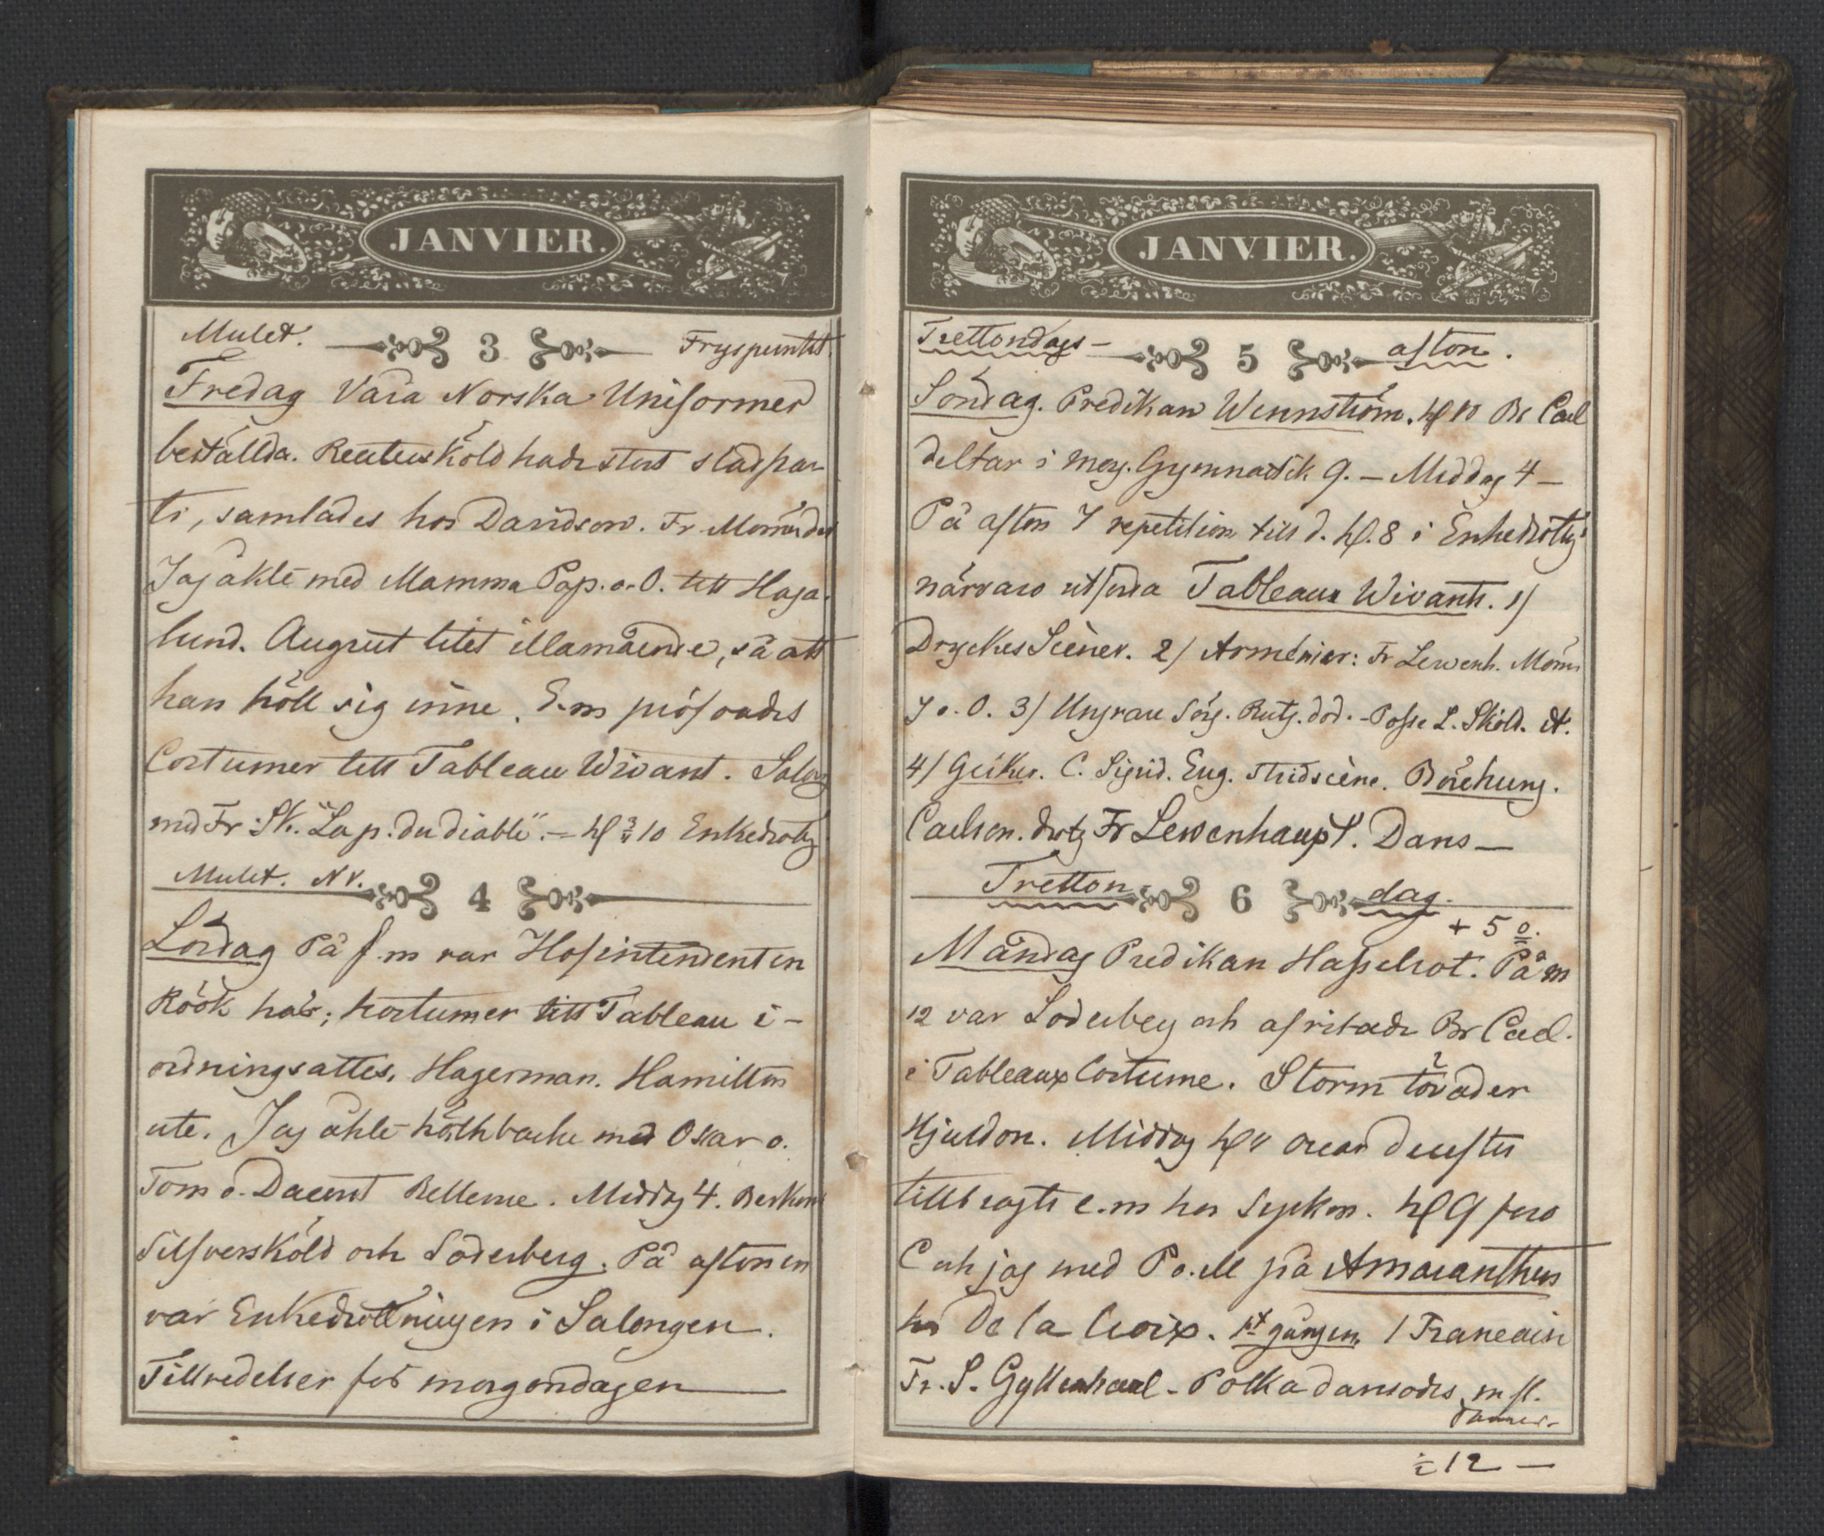 JANVIER.
Mulet. 3 Fryspunkt.
Fredag Våra Norska Uniformer
beställda. Reutersköld hade stort slädpar-
ti, samlades hos Davidson. Fr. Mörner
Jag åkte med Mamma Pap. o. O. till Haga-
lund. August litet illamående, så att
han höll sig inne. E.m pröfvades
Costumer till Tableau Wivant. Salong
med Fr: Sk. "La p. du diable". — kl ¾ 10 Enkedrottg
Mulet. NV. 4
Lördag På f.m var Hofintendenten
Röök här; kostumer till Tableau i-
ordningsattes. Hagerman. Hamilton
ute. Jag åkte kälkbacke med Oscar o.
Tom o. Daevel Bellevue. Middag 4. Beskow
Silfversköld och Söderberg. På aftonen
var Enkedrottningen i Salongen.
Tillredelser för morgondagen
JANVIER.
Trettondags- 5 afton.
Söndag. Predikan Wennström. kl 10 Br Carl
deltar i morg. Gymnastik 9. — Middag 4 —
På afton 7 repetition till d. kl. 8 i Enkedrottgs
närvaro utförda Tableaux Wivants. 1/
Dryckes Scener. 2/ Armenier: Fr Lewenh. Mörn.
J o. O. 3/ Ungrau Sörj. Rutg. död. - Posse L. Sköld. A.
4/ Greker. C. Sigrid. Eug. stridscène.
Carlson. drotg Fr Lewenhaupt. Dans —
Tretton 6 dag.
+ 5 o.
Måndag Predikan Hasselrot. På m
12 var Söderberg och afritade Br Carl.
i Tableaux Costume. Storm töväder
Hjuldon. Middag kl 4 Oscar derefter
tillbragte e.m hos Syskon. kl 9 foro
C och jag med P o. M på Amaranthen
hos De la Croix. 1st gången. 1 Francaise
Fr. S. Gyllenhaal - Polka dansades m fl.
Danser-
12 —